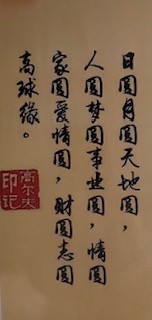 日圆月圆天地圆，
人圆梦圆事业圆，情圆
家圆爱情圆，财圆志圆
高球缘。
高尔夫
印记